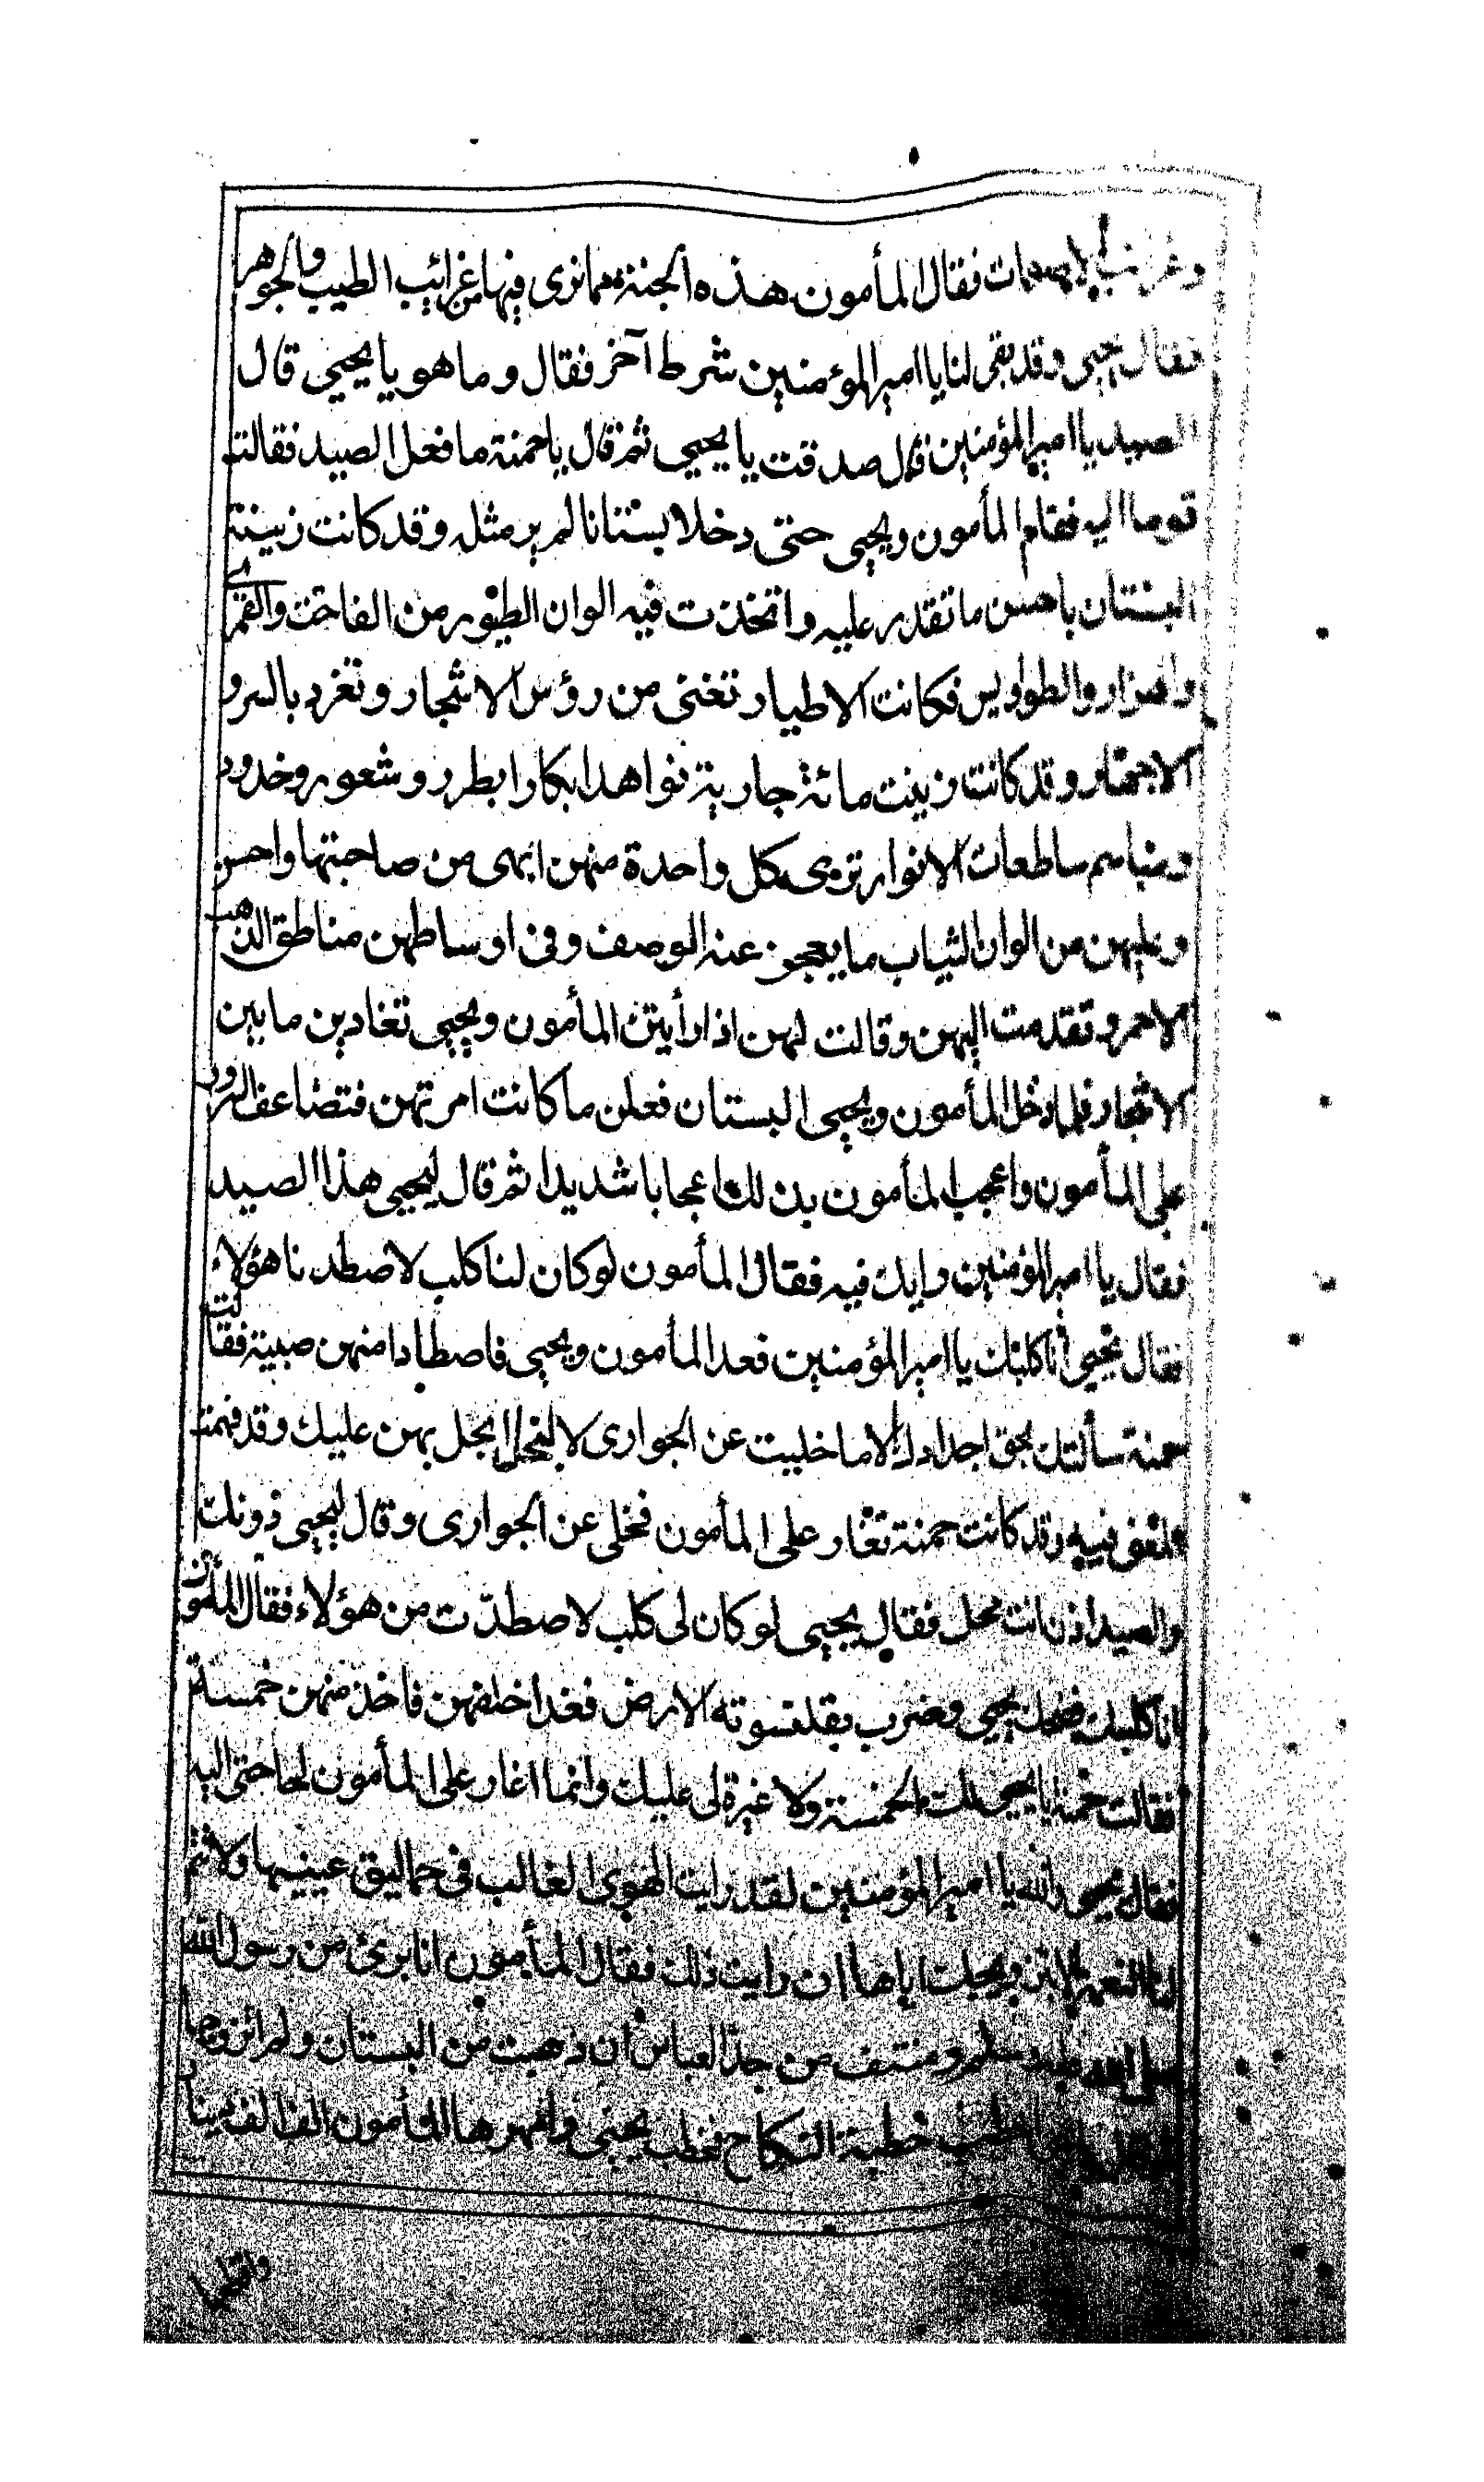 وغرائب الاصوات فقال المأمون هذه الجنة مما نرى فيها من غرائب الطيب والجوهر
فقال يحيى وقد بقى لنا يا امير المؤمنين شرط آخر فقال وما هو يا يحيى قال
الصيد يا امير المؤمنين قال صدقت يا يحيى ثم قال يا حمنة ما فعل الصيد فقالت
قوما اليه فقام المأمون ويحيى حتى دخلا بستنانا لم ير مثله وقد كانت زينة
البستان باحسن ما تقدر عليه واتخذت فيه الوان الطيور من الفاخت والقمرى
والهزار والطواويس فكانت الاطيار تغنى من رؤس الاشجار وتغرد بالسرو
وقد كانت زينت مائة جارية نواهد ابكارا بطرر وشعور وخدود
ومباسم ساطعات الانوار ترى كل واحدة منهن ابهى من صاحبتها واحسن
وعليهن من الوان الثياب ما يعجز عنه الوصف وفى اوساطهن مناطق الذهب
الاحمر وتقدمت اليهن وقالت لهن اذا رأيتن المأمون ويحيى تغادين ما بين
الاشجار فلما دخل المأمون ويحيى البستان فعلن ما كانت امرتهن فتضاعف السرور
على المأمون واعجب المأمون بذلك اعجابا شديدا ثم قال ليحيى هذا الصيد
فقال يا امير المؤمنين وايك فيه فقال المأمون لو كان لنا كلب لاصطدنا هؤلاء
فقال يحيى أنا كلبك يا امير المؤمنين فعدا المأمون ويحيى فاصطادا منهن صبية فقالت
حمنة سألتك بحق اجدادك الا ما خليت عن الجوارى لا بخل بهن عليك وقد فهمت
وقد كانت حمنة تغار على المأمون فخلى عن الجوارى وقال ليحيى دونك
والصيد فقال يحيى لو كان لى كلب لاصطدت من هؤلاء فقال المأمون
انا كلبك فضحك يحيى وضرب بقلنسوته الارض فغدا خلفهن فاخذ منهن خمسة
فقالت حمنة يا يحيى لك الخمسة ولا غيرة لى عليك وانما اغار على المأمون لحاجتى اليه
فقال يحيى والله يا امير المؤمنين لقد رايت الهوى الغالب فى حماليق عينيها ولا تتم
لنا النعمة الا بتزويجك اياها ان رايت ذلك فقال المأمون انا برئ من رسول الله
صلى الله عليه وسلم ومنتف من جد العباس ان ذهبت من البستان ولم اتزوجها
خطبة النكاح فخطب يحيى وامهرها المأمون الف الف دينار